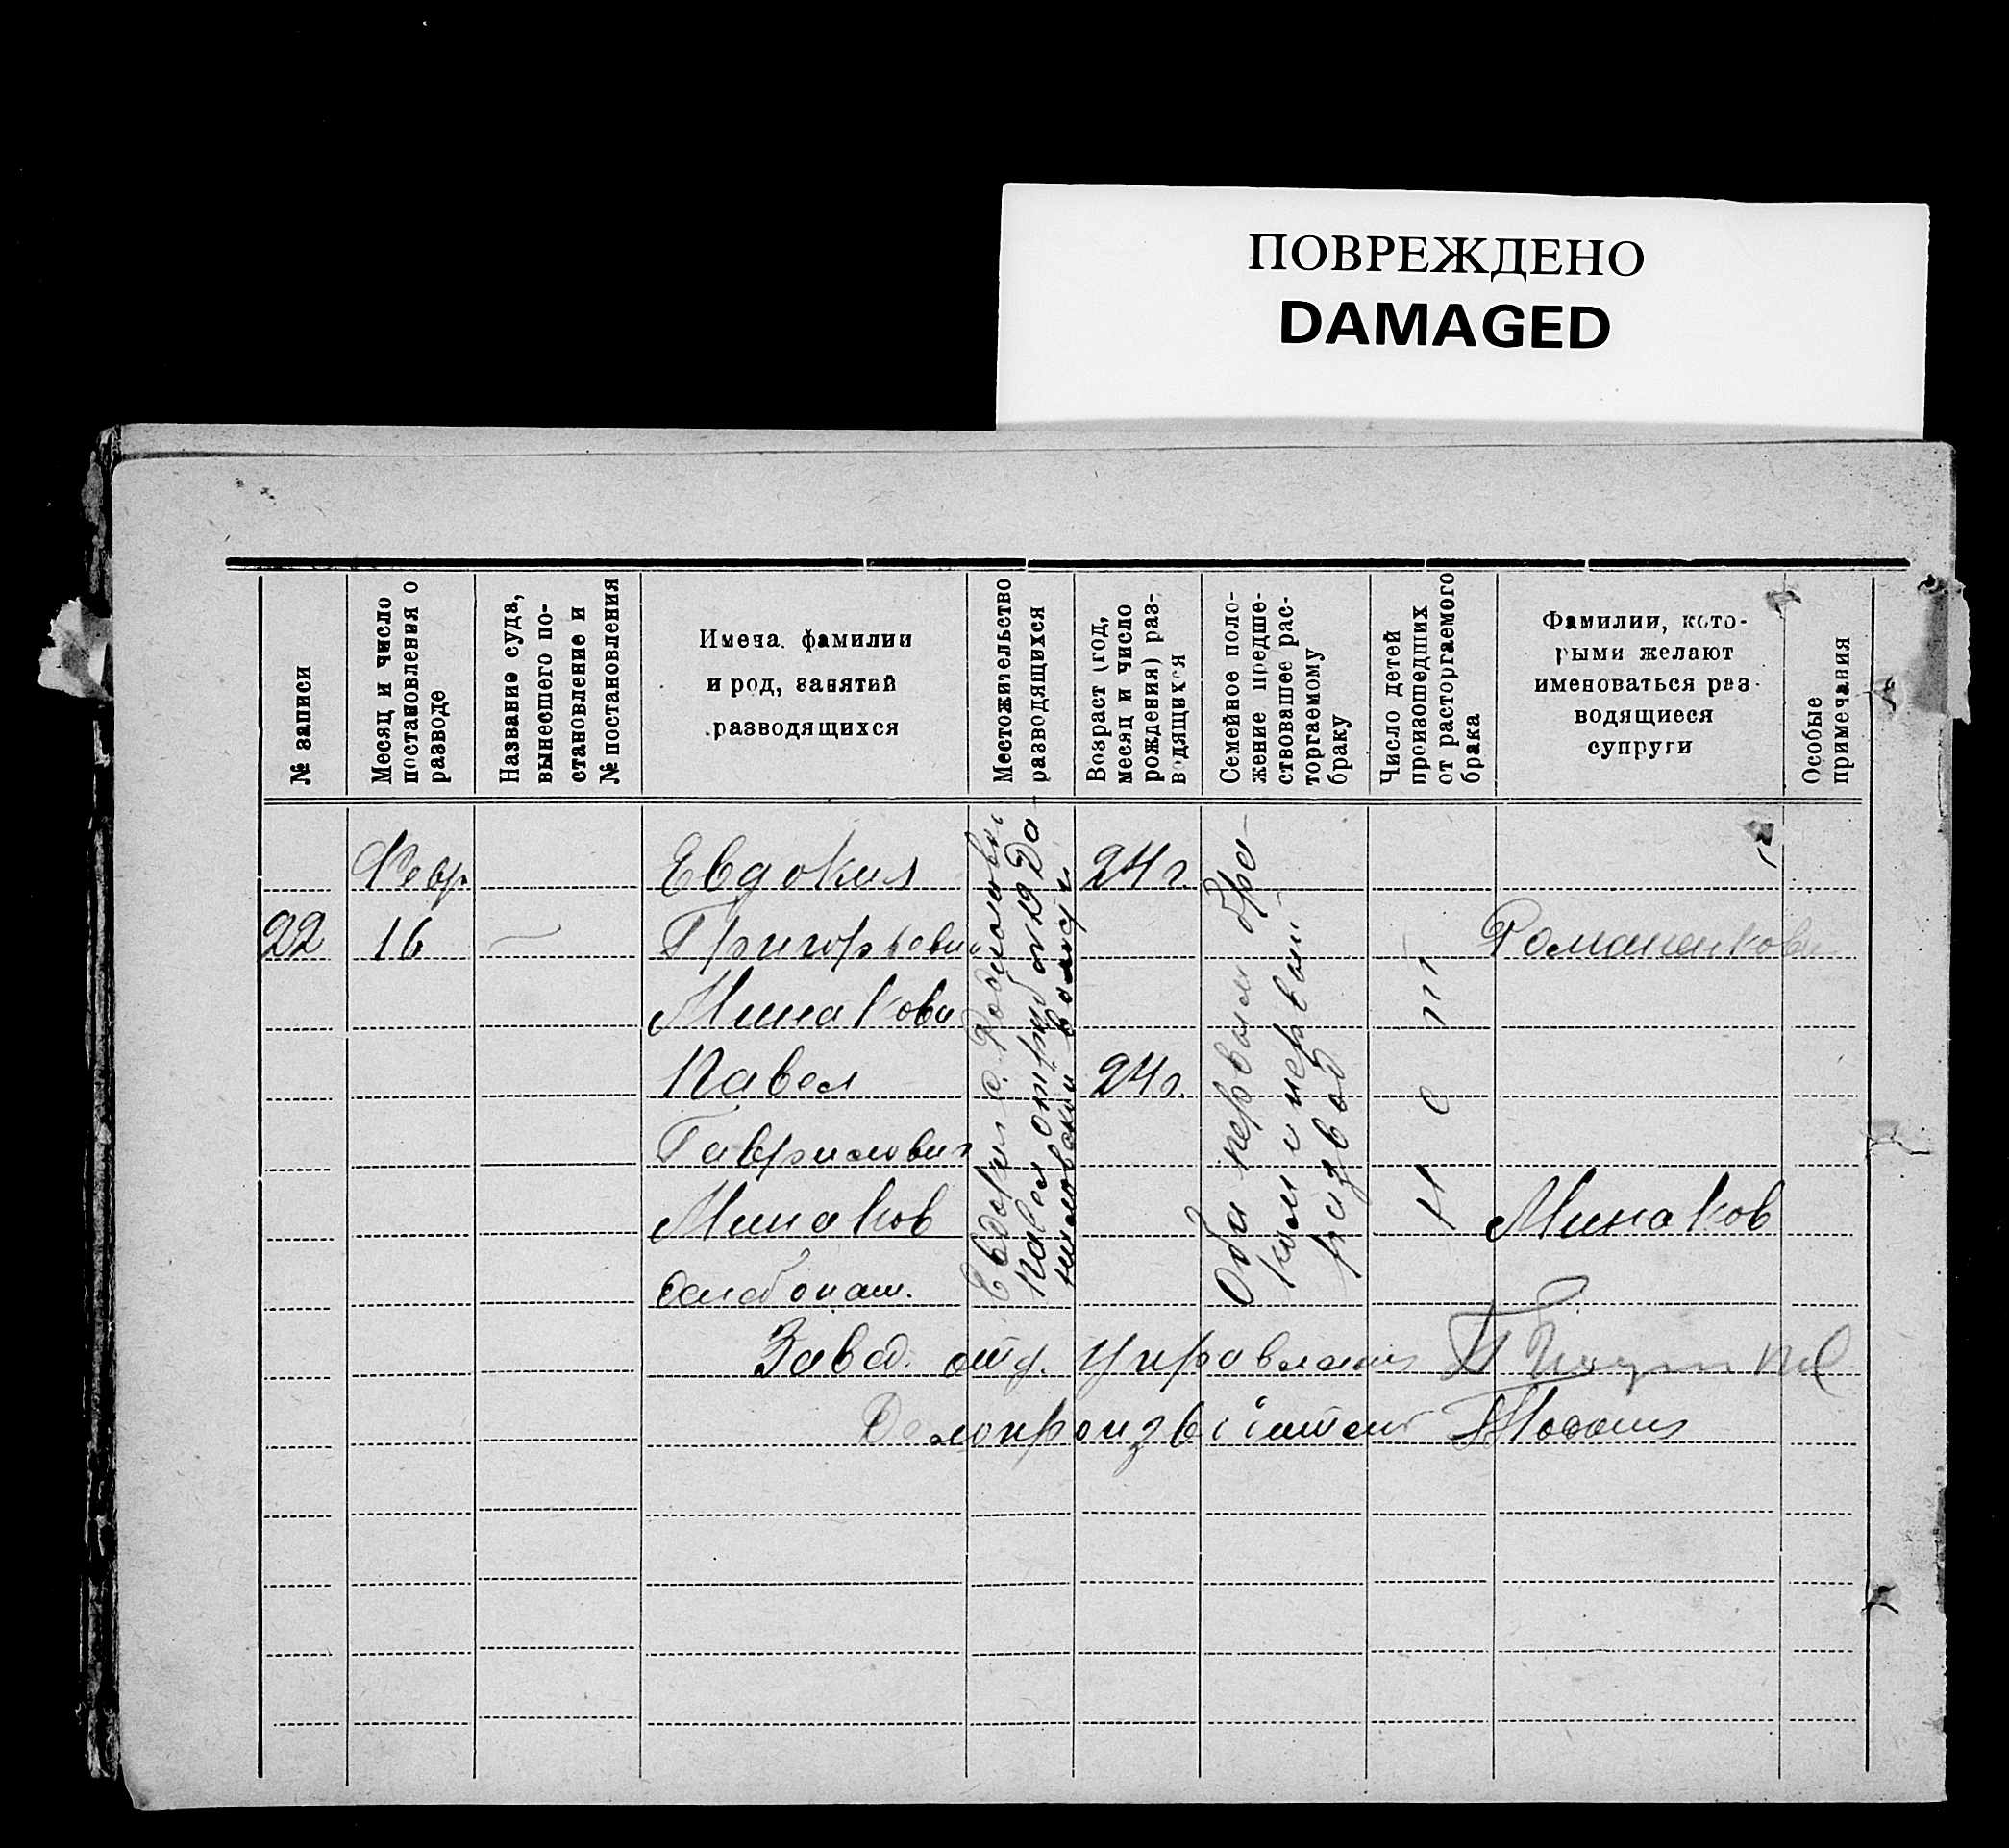 ПОВРЕЖДЕНО
DAMAGED
№ записи
Месяц и число
постановления о
разводе
Название суда,
вынесшего по-
становление и
№ постановления
Имена. фамилии
и род, занятий
разводящихся
Местожительство
разводящихся
Возраст (год,
месяц и число
рождения) раз-
водящихся
Семейное поло-
жение предше-
ствовавшее рас-
торгаемому
браку
Число детей
происшедших
от расторгаемого
брака
Фамилии, кото-
рыми желают
именоваться раз-
водящиеся
супруги
Особые
примечания
22
Февр
16
—
Евдокия
Григорьевна
Минакова
Павел
Гаврилович
Минаков
хлебопаш.
Евдокия с.
Павел
волости
24 г.
24 г.
Оба первым бра-
ком и первый
развод
Нет
Романенкова
Минаков
Завед. отд. Управления
Делопроизводитель